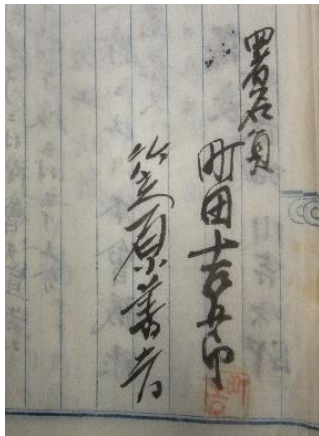 署名員
町田吉五郎
笠原善